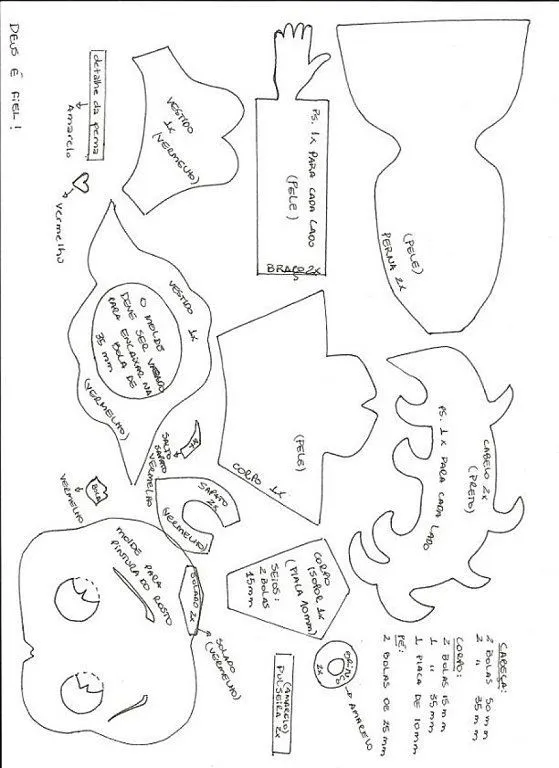 DEUS É FIEL!
detalhe da perna
Amarelo
vermelho
VESTIDO
1X
(VERMELHO)
PS. 1X PARA CADA LADO
(PELE)
BRAÇO 2X
(PELE)
PERNA 2X
VESTIDO 1X
O MOLDE
DEVE SER VAZADO
PARA ENCAIXAR NA
BOLA DE
35 mm
(VERMELHO)
(PELE)
CORPO 1X
CABELO 2X
(PRETO)
PS. 1X PARA CADA LADO
SALTO
SAPATO
VERMELHO
SAPATO
2X
(VERMELHO)
BOCA
VERMELHO
MOLDE PARA
PINTURA DO ROSTO
SOLADO 2X
SOLADO
(VERMELHO)
CORPO
ISOPOR 1X
(PLACA 10mm)
SEIOS:
2 BOLAS
15mm
BRINCO
2X
AMARELO
(AMARELO)
PULSEIRA 2X
CABEÇA:
2 BOLAS 50 mm
2 " 35 mm
CORPO:
2 BOLAS 15 mm
1 " 35 mm
1 PLACA DE 10 mm
PÉ:
2 BOLAS DE 25 mm